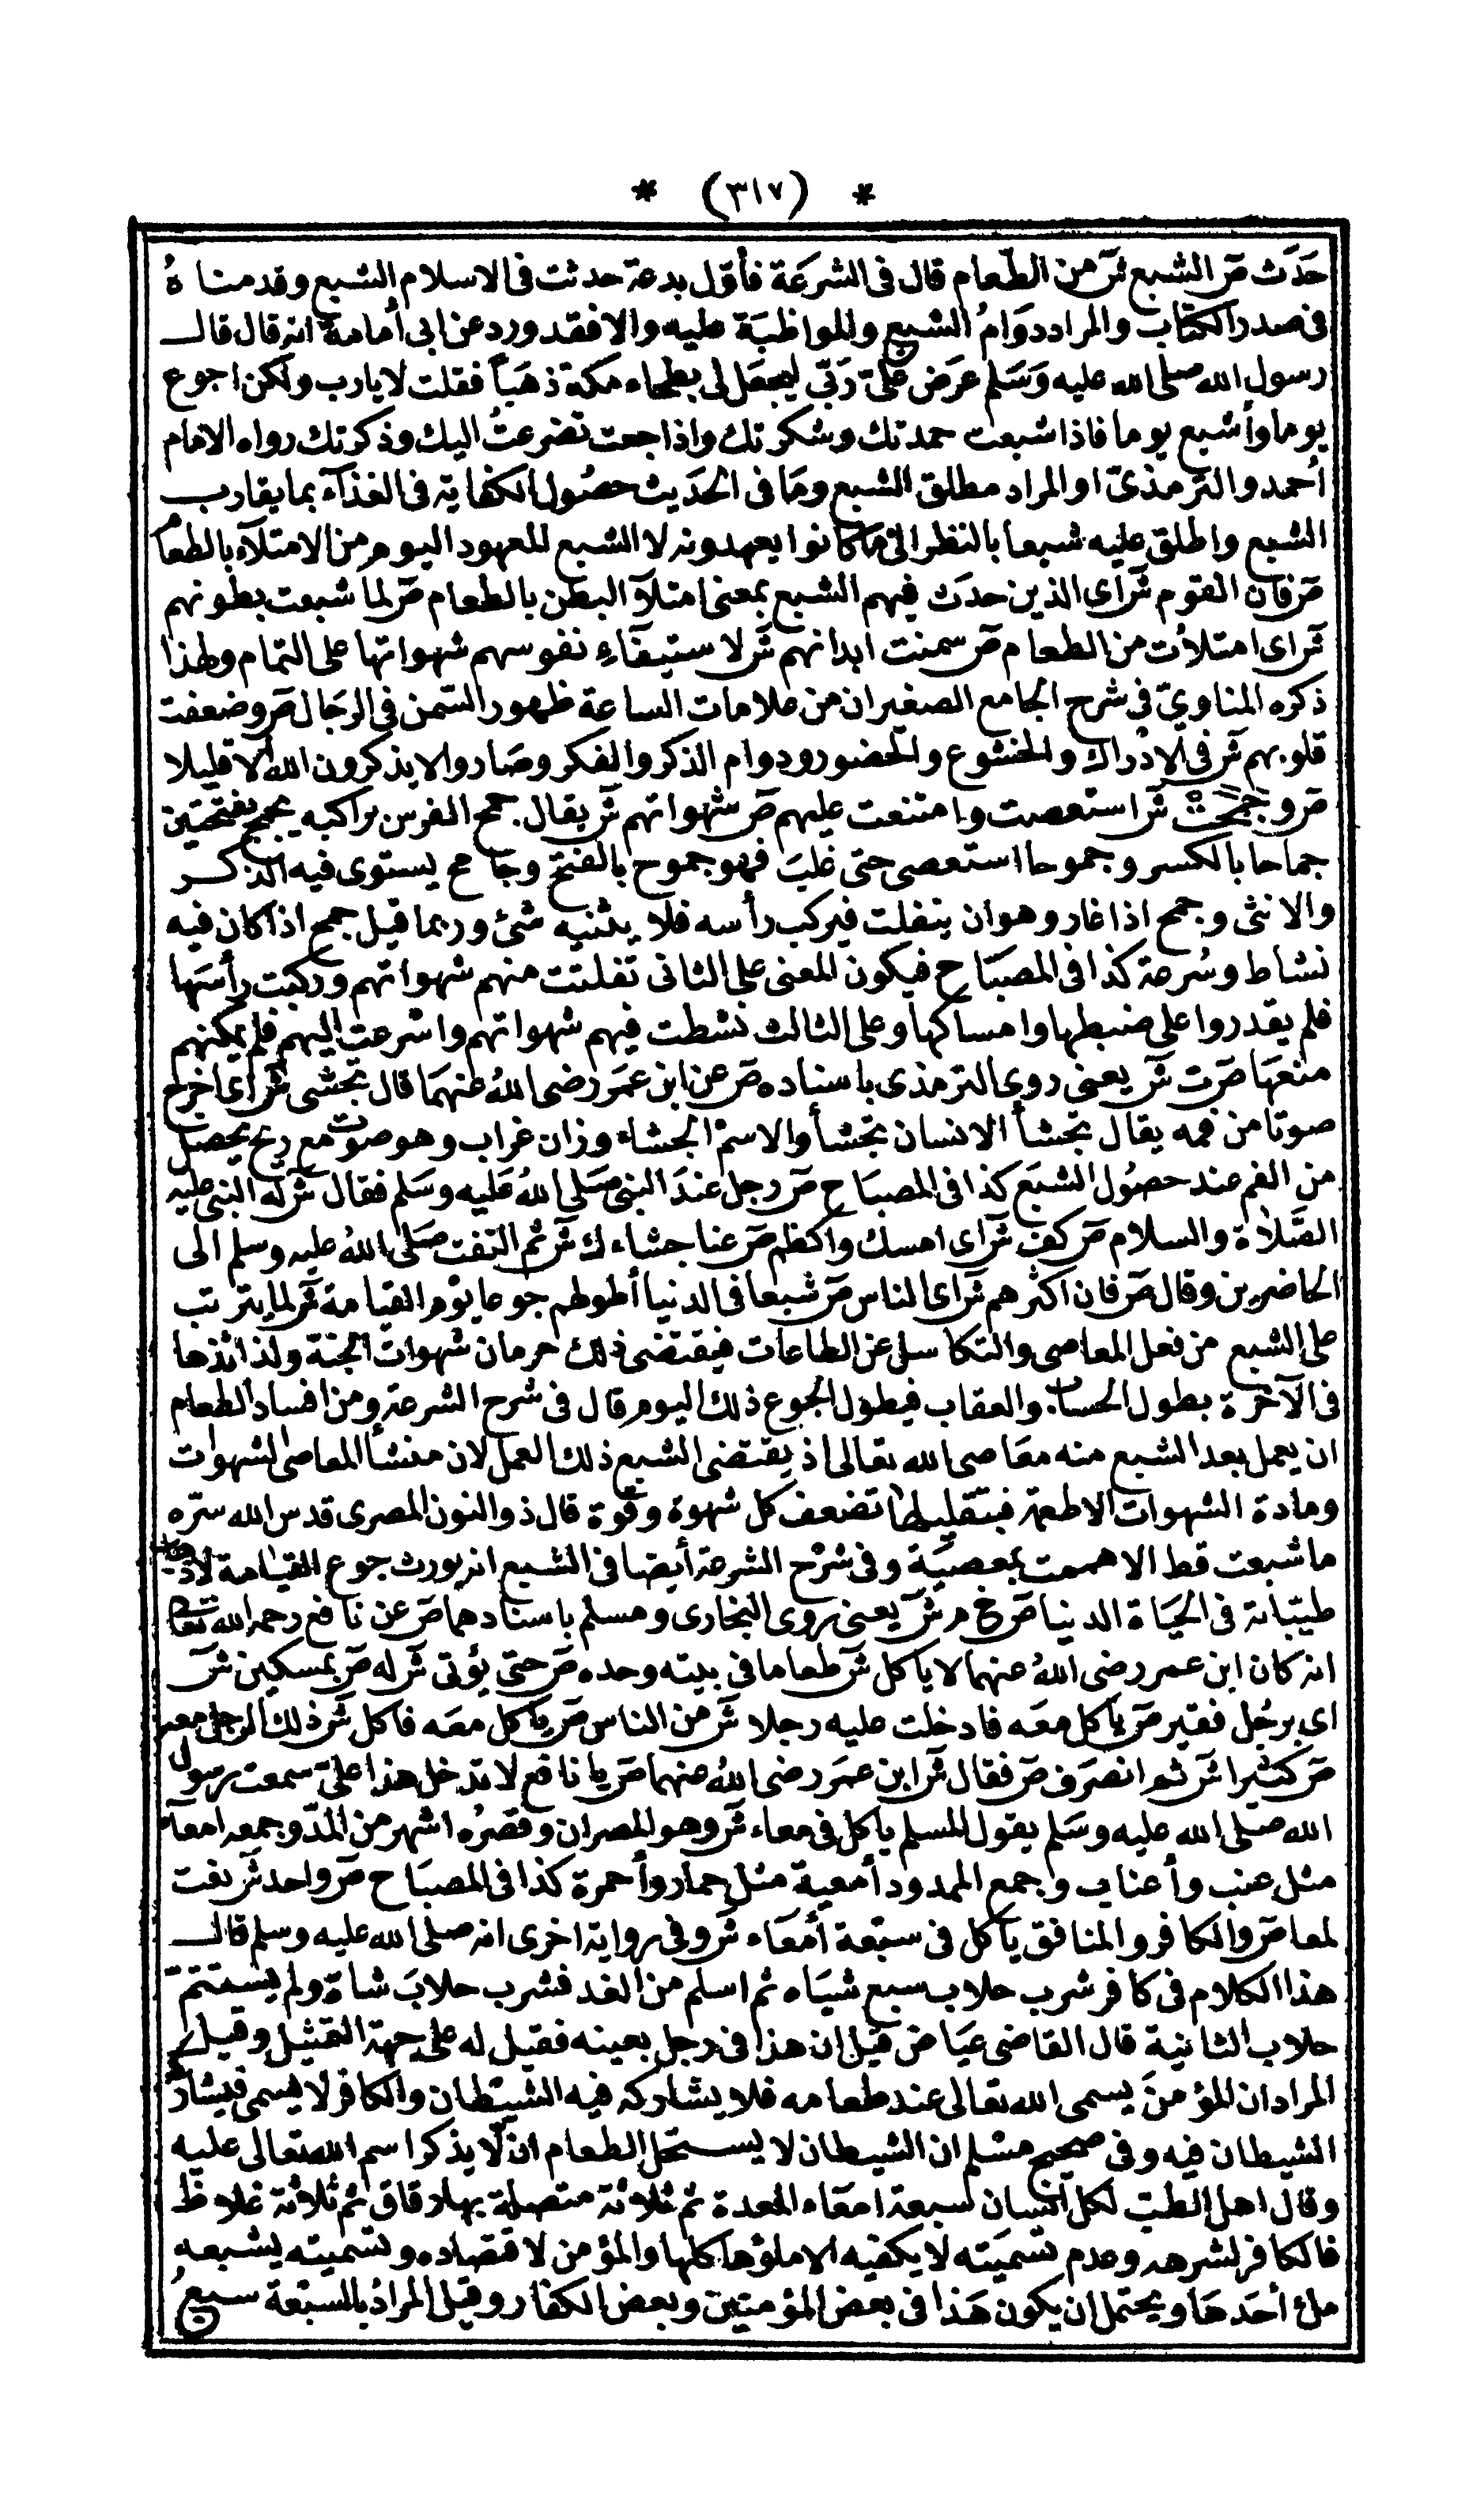 * (٣١٧) *
حَدَث ص الشبع ش من الطعام قال فى الشرعَة فأوّل بدعة حدثت فى الاسلام الشبع وقدمناهُ
فى صدر الكتاب والمراد دوَامُ الشبع والمواظبَة عليه والا فقد ورد عن ابى أمامة انه قال قال
رسول الله صلى الله عليه وَسَلم عرَض علىّ ربّى ليجعَل لى بطحاء مكة ذهَباً فقلت لا يارب ولكن اجوع
يوما وأشبع يوما فاذا شبعت حمدتك وشكرتك واذا جعت تضرعتُ اليك وذكرتك رواه الامام
أحمد والترمذىّ او المراد مطلق الشبع ومَا فى الحَديث حصُول الكفاية فى الغذآء بما يقارب
الشبع واطلق عليه شبعا بالنظر الى ما كانوا يعهدونه لا الشبع المعهود اليوم من الامتلآء بالطعام
ص فان القوم ش اى الذين حدَث فيهم الشبع بمعنى امتلآ البطن بالطعام ص لما شبعت بطونهم
ش اى امتلأت من الطعام ص سمنت ابدانهم ش لاستيفآءِ نفوسهم شهواتها على التمام ولهذا
ذكره المناوىّ فى شرح الجامع الصغير ان من علامات الساعة ظهور السّمن فى الرجَال ص وضعفت
قلوبهم ش فى الادْراك والخشوع والحضور ودوام الذكر والفكر وصَاروا لا يذكرون الله الا قليلا
ص وجمحَتْ ش استعصت وامتنعت عليهم ص شهواتهم ش يقال جمح الفرس براكبه يجمح بفتحتَين
جماحا بالكسر وجموحا استعصى حتى غلبَ فهو جموح بالفتح وجامح يستوى فيه الذكر
والانثى وجمح اذا غار وهو ان ينفلت فيركب رأسه فلا يثنيه شئ وربما قيل جمح اذا كان فيه
نشاط وسُرعة كذا فى المصبَاح فيكون المعنى على الثانى تفلتت منهم شهواتهم وركبت رأسَها
فلم يقدروا على ضبطها وامساكها وعلى الثالث نشطت فيهم شهواتهم واسرعت اليهم فلم يمكنهم
منعهَا ص ت ش يعنى روى الترمذى باسناده ص عن ابن عمَر رضى اللهُ عنهمَا قال تجشى ش اى اخرج
صوتا من فمه يقال تجشأ الانسان تجشأ والاسم الجشاء وزان غراب وهو صوت مع ريح يحصل
من الفم عند حصُول الشبَع كذا فى المصبَاح ص رجل عندَ النبى صَلى اللهُ عَليه وسَلم فقال ش له النبى عليه
الصَّلاة والسلام ص كف ش اى امسك واكظم ص عنا جشاءك ش ثم التفت صَلى اللهُ عليه وسلم الى
الحاضرين وقال ص فان اكثرهم ش اى الناس ص شبعا فى الدنيا أطولهم جوعا يوْم القيامة ش لما يترتب
على الشبع من فعل المعاصى والتكاسل عن الطاعات فيقتضى ذلك حرمان شهوات الجنة ولذائذها
فى الآخرة بطول الحساب والعقاب فيطول الجوع ذلك اليوم قال فى شرح الشرعة ومن افساد الطعام
ان يعمل بعد الشبع منه معَاصى الله تعالى اذ يقتضى الشبع ذلك العمل لان منشأ المعاصى الشهوات
ومادة الشهوات الاطعمة فبتقليلها تضعف كل شهوة وقوة قال ذو النون المصرى قدس الله سرّه
ما شبعت قط الا هممت بمعصيَة وفى شرْح الشرعة أيضا فى الشبع انه يورث جوع القيَامة لاذهاب
طيّباته فى الحيَاة الدنيا ص خ م ش يعنى روى البخارى ومسلم باسنادهما ص عن نافع رحمه الله تعالى
انه كان ابن عمر رضى اللهُ عنهما لا يأكل ش طعاما فى بيته وحده ص حتى يؤتى ش له ص بمسكين ش
اى برجُل فقير ص يأكل معَه فادخلت عليه رجلا ش من الناس ص يأكل معَه فاكل ش ذلك الرجل معه
ص كثيرا ش ثم انصرَف ص فقال ش ابن عمَر رضى اللهُ عنهما ص يا نافع لا تدخل هذا علىّ سمعت رسول
الله صَلى الله عليه وسَلم يقول المسلم يأكل فى معاء ش وهو المصران وقصرُه اشهر من المدّ وجمعه امعآء
مثل عنب وأعناب وجمع الممدود أمعية مثل حمار وأحمرة كذا فى المصبَاح ص واحد ش نعت
لمعا ص والكافر والمنافق يأكل فى سبْعة أمعَاء ش وفى رواية اخرى انه صلى الله عليه وسلم قال
هذا الكلام فى كافر شرب حلاب سبع شيَاه ثم اسلم من الغد فشرب حلابَ شاة ولم يستتم
حلاب الثانية قال القاضى عيَاض قيل ان هذا فى رجل بعينه فقيل له على جهة التمثيل وقيل
المراد ان المؤمنَ يسمى الله تعالى عند طعامه فلا يشاركه فيه الشيْطان والكافر لا يسمى فيشاركُه
الشيطان فيه وفى صحيح مسْلم ان الشيطان لا يستحل الطعام ان لا يذكر اسم الله تعالى عليه
وقال اهل الطب لكل انسان سبعة امعَاء المعدة ثم ثلاثة متصلة بها رقاق ثم ثلاثة غلاظ
فالكافر لشرهه وعدم تسميَته لا يكفيه الا ملؤها كلها والمؤمن لاقتصاده وتسميته يشبعه
ملء أحَدهَا ويحتمل ان يكون هَذا فى بعض المؤمنين وبعض الكفار وقيل المرادُ بالسبْعة سبعُ